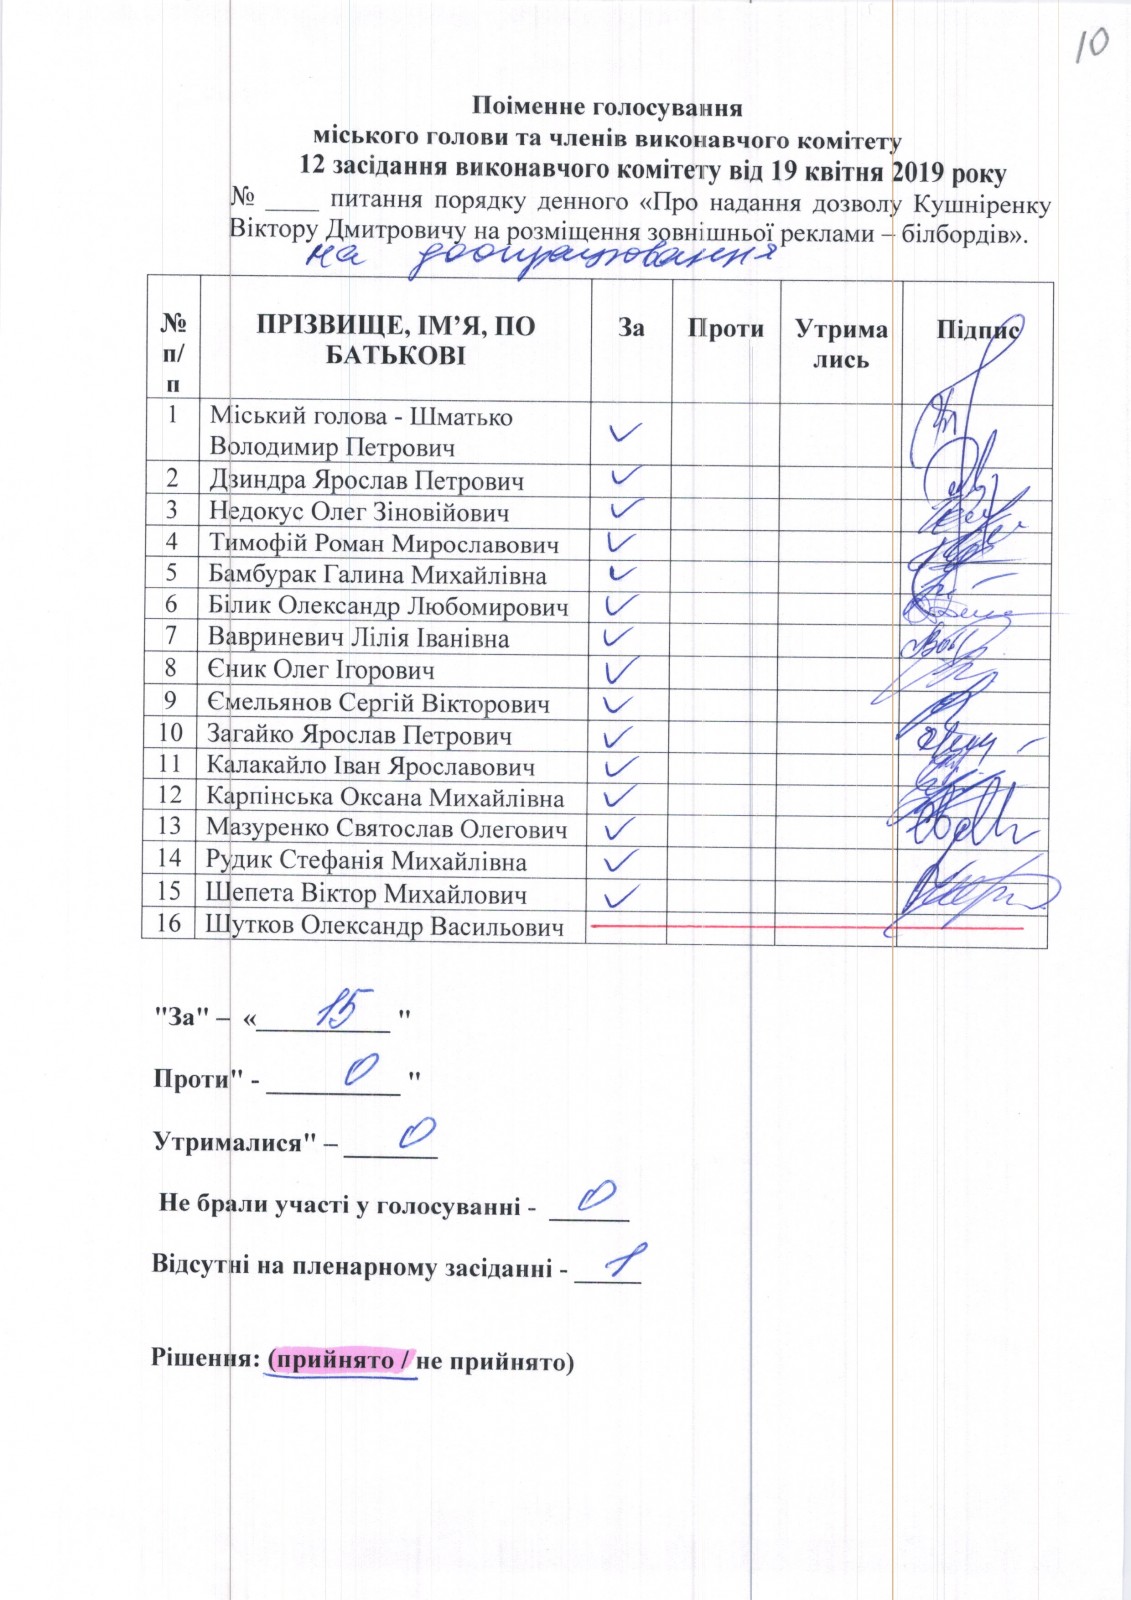 10
Поіменне голосування
міського голови та членів виконавчого комітету
12 засідання виконавчого комітету від 19 квітня 2019 року
№ ____ питання порядку денного «Про надання дозволу Кушніренку
Віктору Дмитровичу на розміщення зовнішньої реклами – білбордів».
на доопрацювання
№ п/п ПРІЗВИЩЕ, ІМ’Я, ПО БАТЬКОВІ За Проти Утримались Підпис
1 Міський голова - Шматько
Володимир Петрович ✓
2 Дзиндра Ярослав Петрович ✓
3 Недокус Олег Зіновійович ✓
4 Тимофій Роман Мирославович ✓
5 Бамбурак Галина Михайлівна ✓
6 Білик Олександр Любомирович ✓
7 Вавриневич Лілія Іванівна ✓
8 Єник Олег Ігорович ✓
9 Ємельянов Сергій Вікторович ✓
10 Загайко Ярослав Петрович ✓
11 Калакайло Іван Ярославович ✓
12 Карпінська Оксана Михайлівна ✓
13 Мазуренко Святослав Олегович ✓
14 Рудик Стефанія Михайлівна ✓
15 Шепета Віктор Михайлович ✓
16 Шутков Олександр Васильович
"За" – «15"
Проти" - 0"
Утрималися" – 0
Не брали участі у голосуванні - 0
Відсутні на пленарному засіданні - 1
Рішення: (прийнято / не прийнято)